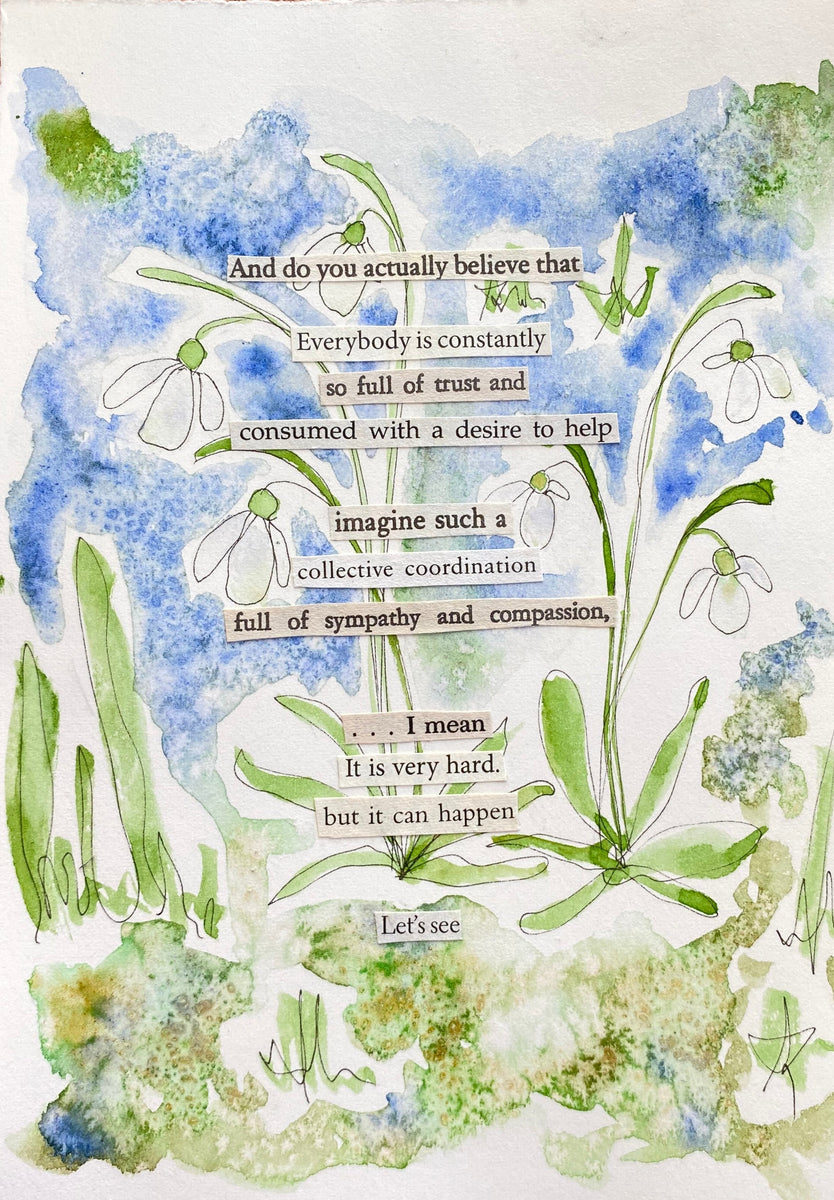 And do you actually believe that
Everybody is constantly
so full of trust and
consumed with a desire to help
imagine such a
collective coordination
full of sympathy and compassion,
. . . I mean
It is very hard.
but it can happen
Let's see